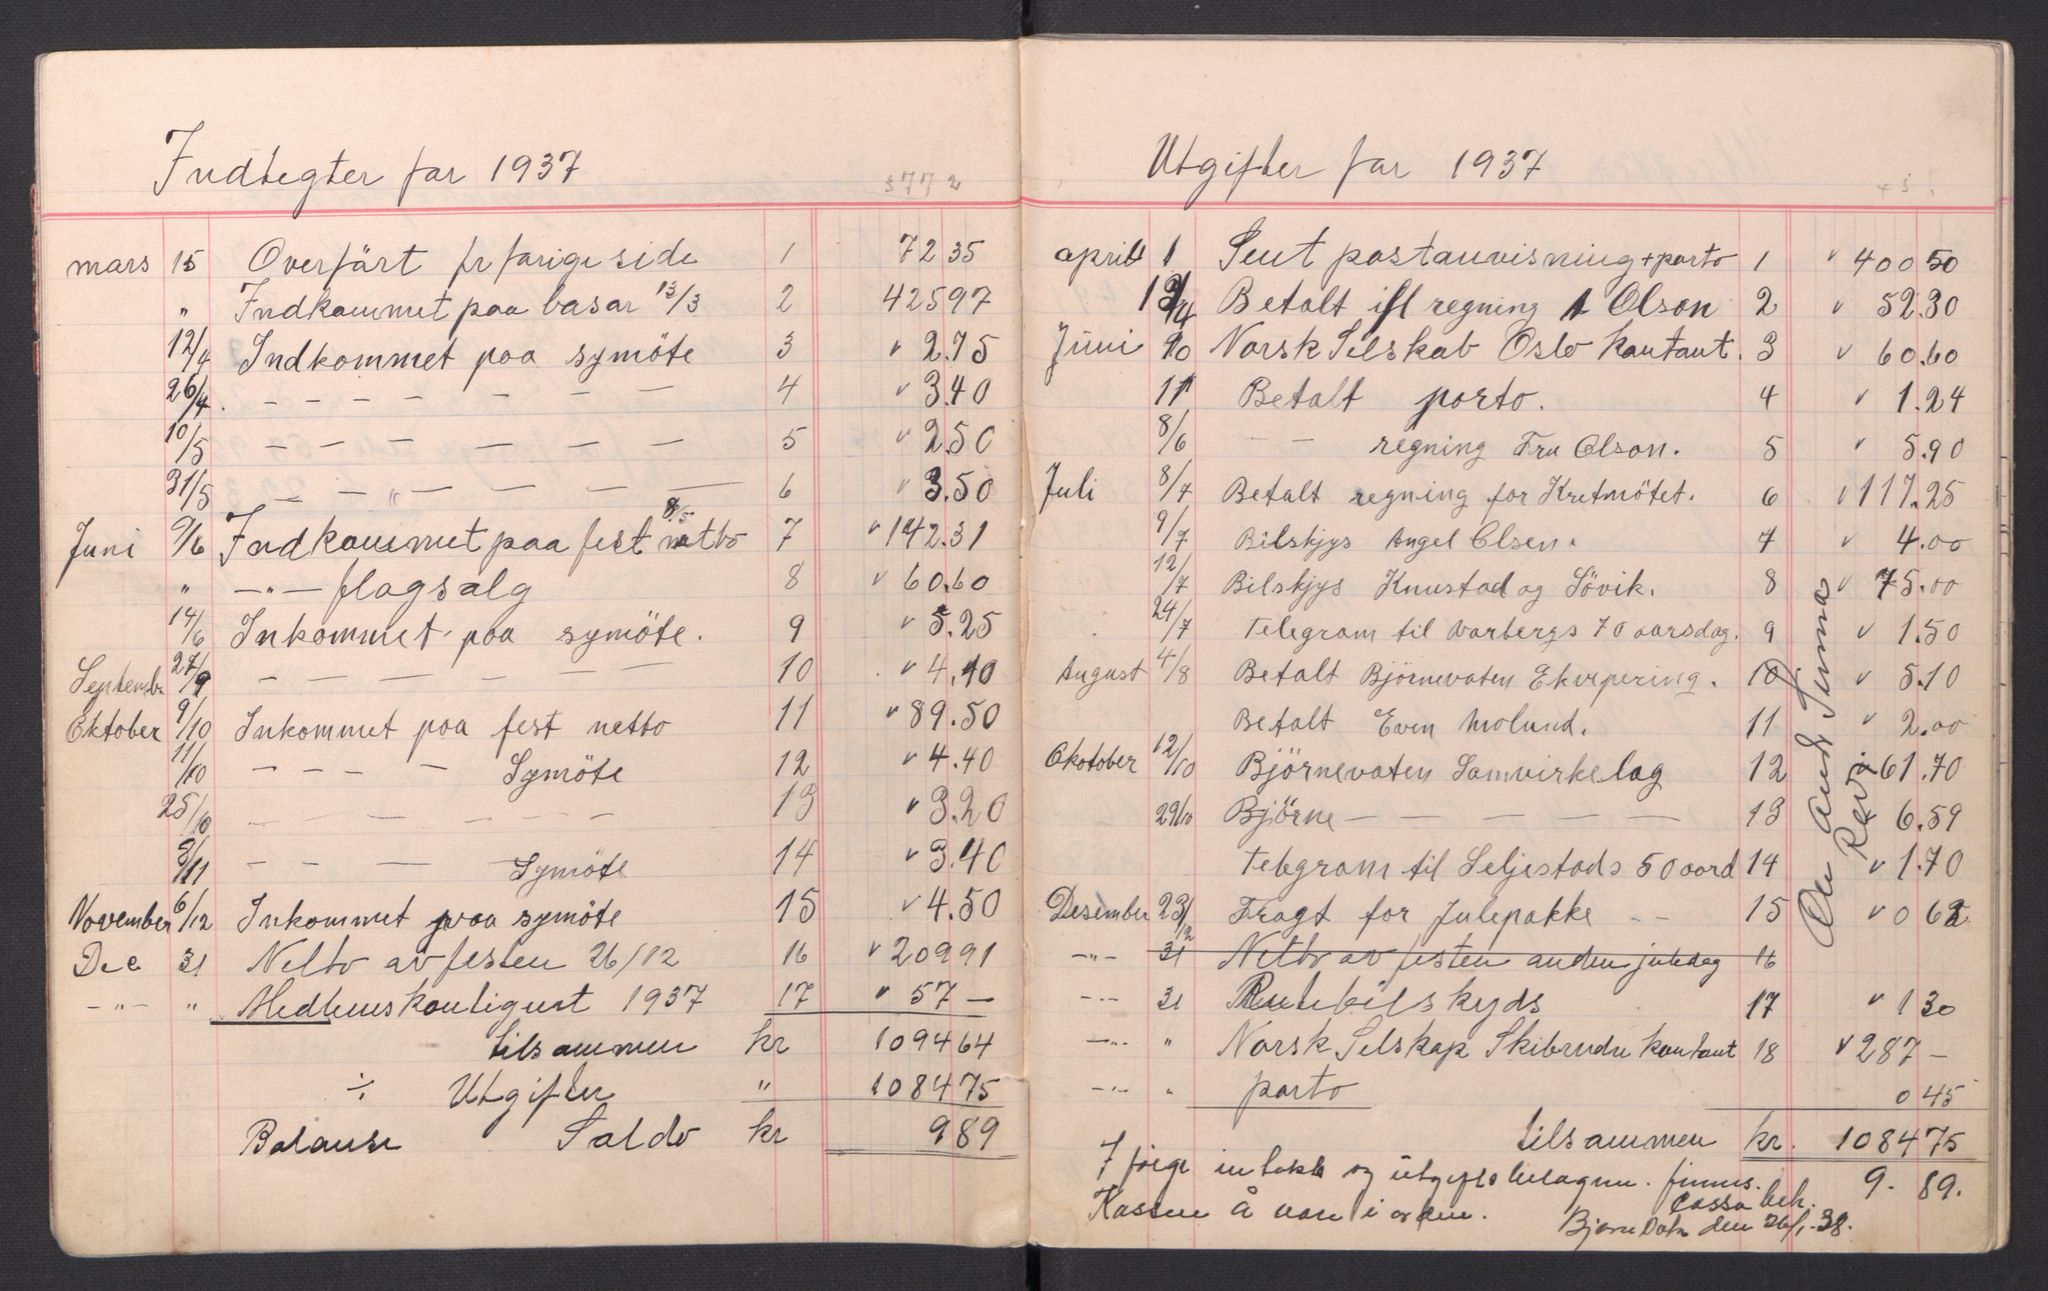 Indtegter for 1937
3772
mars 15 Overfört fr forige side 1 72 35
" Indkommet paa basar 13/3 2 425 97
12/4 Indkommet paa symöte 3 v 2.75
26/4 - - - - - - - 4 v 3.40
10/5 - - - - - - - 5 v 2.50
31/5 - - " - - - - - 6 v 3.50
Juni 9/6 Indkommet paa fest netto 7 v 142.31
" - " - flagsalg 8 v 60.60
14/6 Inkommet paa symöte. 9 v 5.25
Septemb 27/9 - - - - - - 10 v 4.40
Oktober 9/10 Inkommet paa fest netto 11 v 89.50
11/10 - - - - Symöte 12 v 4.40
25/10 - - - - - - - 13 v 3.20
8/11 - - - Symöte 14 v 3.40
November 6/12 Inkommet paa symöte 15 v 4.50
Dec 31 Netto av festen 26/12 16 v 209 91
- " - " Medlemskontigent 1937 17 v 57 -
tilsammen kr 1094 64
÷ Utgifter " 1084 75
Balanse Saldo kr 9 89
Utgifter for 1937
april 1 Sent postanvisning + porto 1 v 400 50
13/4 Betalt ifl regning A Olson 2 v 52.30
Juni 10 Norsk Selskab Oslo kontant. 3 v 60.60
11 Betalt porto. 4 v 1.24
8/6 - - regning Fru Olson. 5 v 5.90
Juli 8/7 Betalt regning for Kretmötet. 6 v 117.25
9/7 Bilskjys Angel Olsen. 7 v 4.00
12/7 Bilskjys Knustad og Sövik. 8 v 75.00
24/7 Telegram til Varbergs 70 aarsdag. 9 v 1.50
August 4/8 Betalt Björnevaten Ekvipering. 10 v 5.10
Betalt Even Molund. 11 v 2.00
Okotober 12/10 Björnevaten Samvirkelag 12 v 61.70
29/10 Björne - - - - - - 13 6.59
Telegram til Seljestads 50 aard 14 v 1.70
Desember 23/12 Fragt for Julepakke - - 15 v 0 62
- " - 31 Netto av festen anden juledag 16
- " - 31 Rutebilskyds 17 v 1 30
- " - " Norsk Selskap Skibrudne kontant 18 v 287 -
- " - " porto 0 45
tilsammen kr. 1084 75
9. 89.
7 følge intekt og utgifts bilagene. finnes.
Cassa beh.
Kassen å vare i orden.
Bjørnevatn den 26/1-38.
Revi